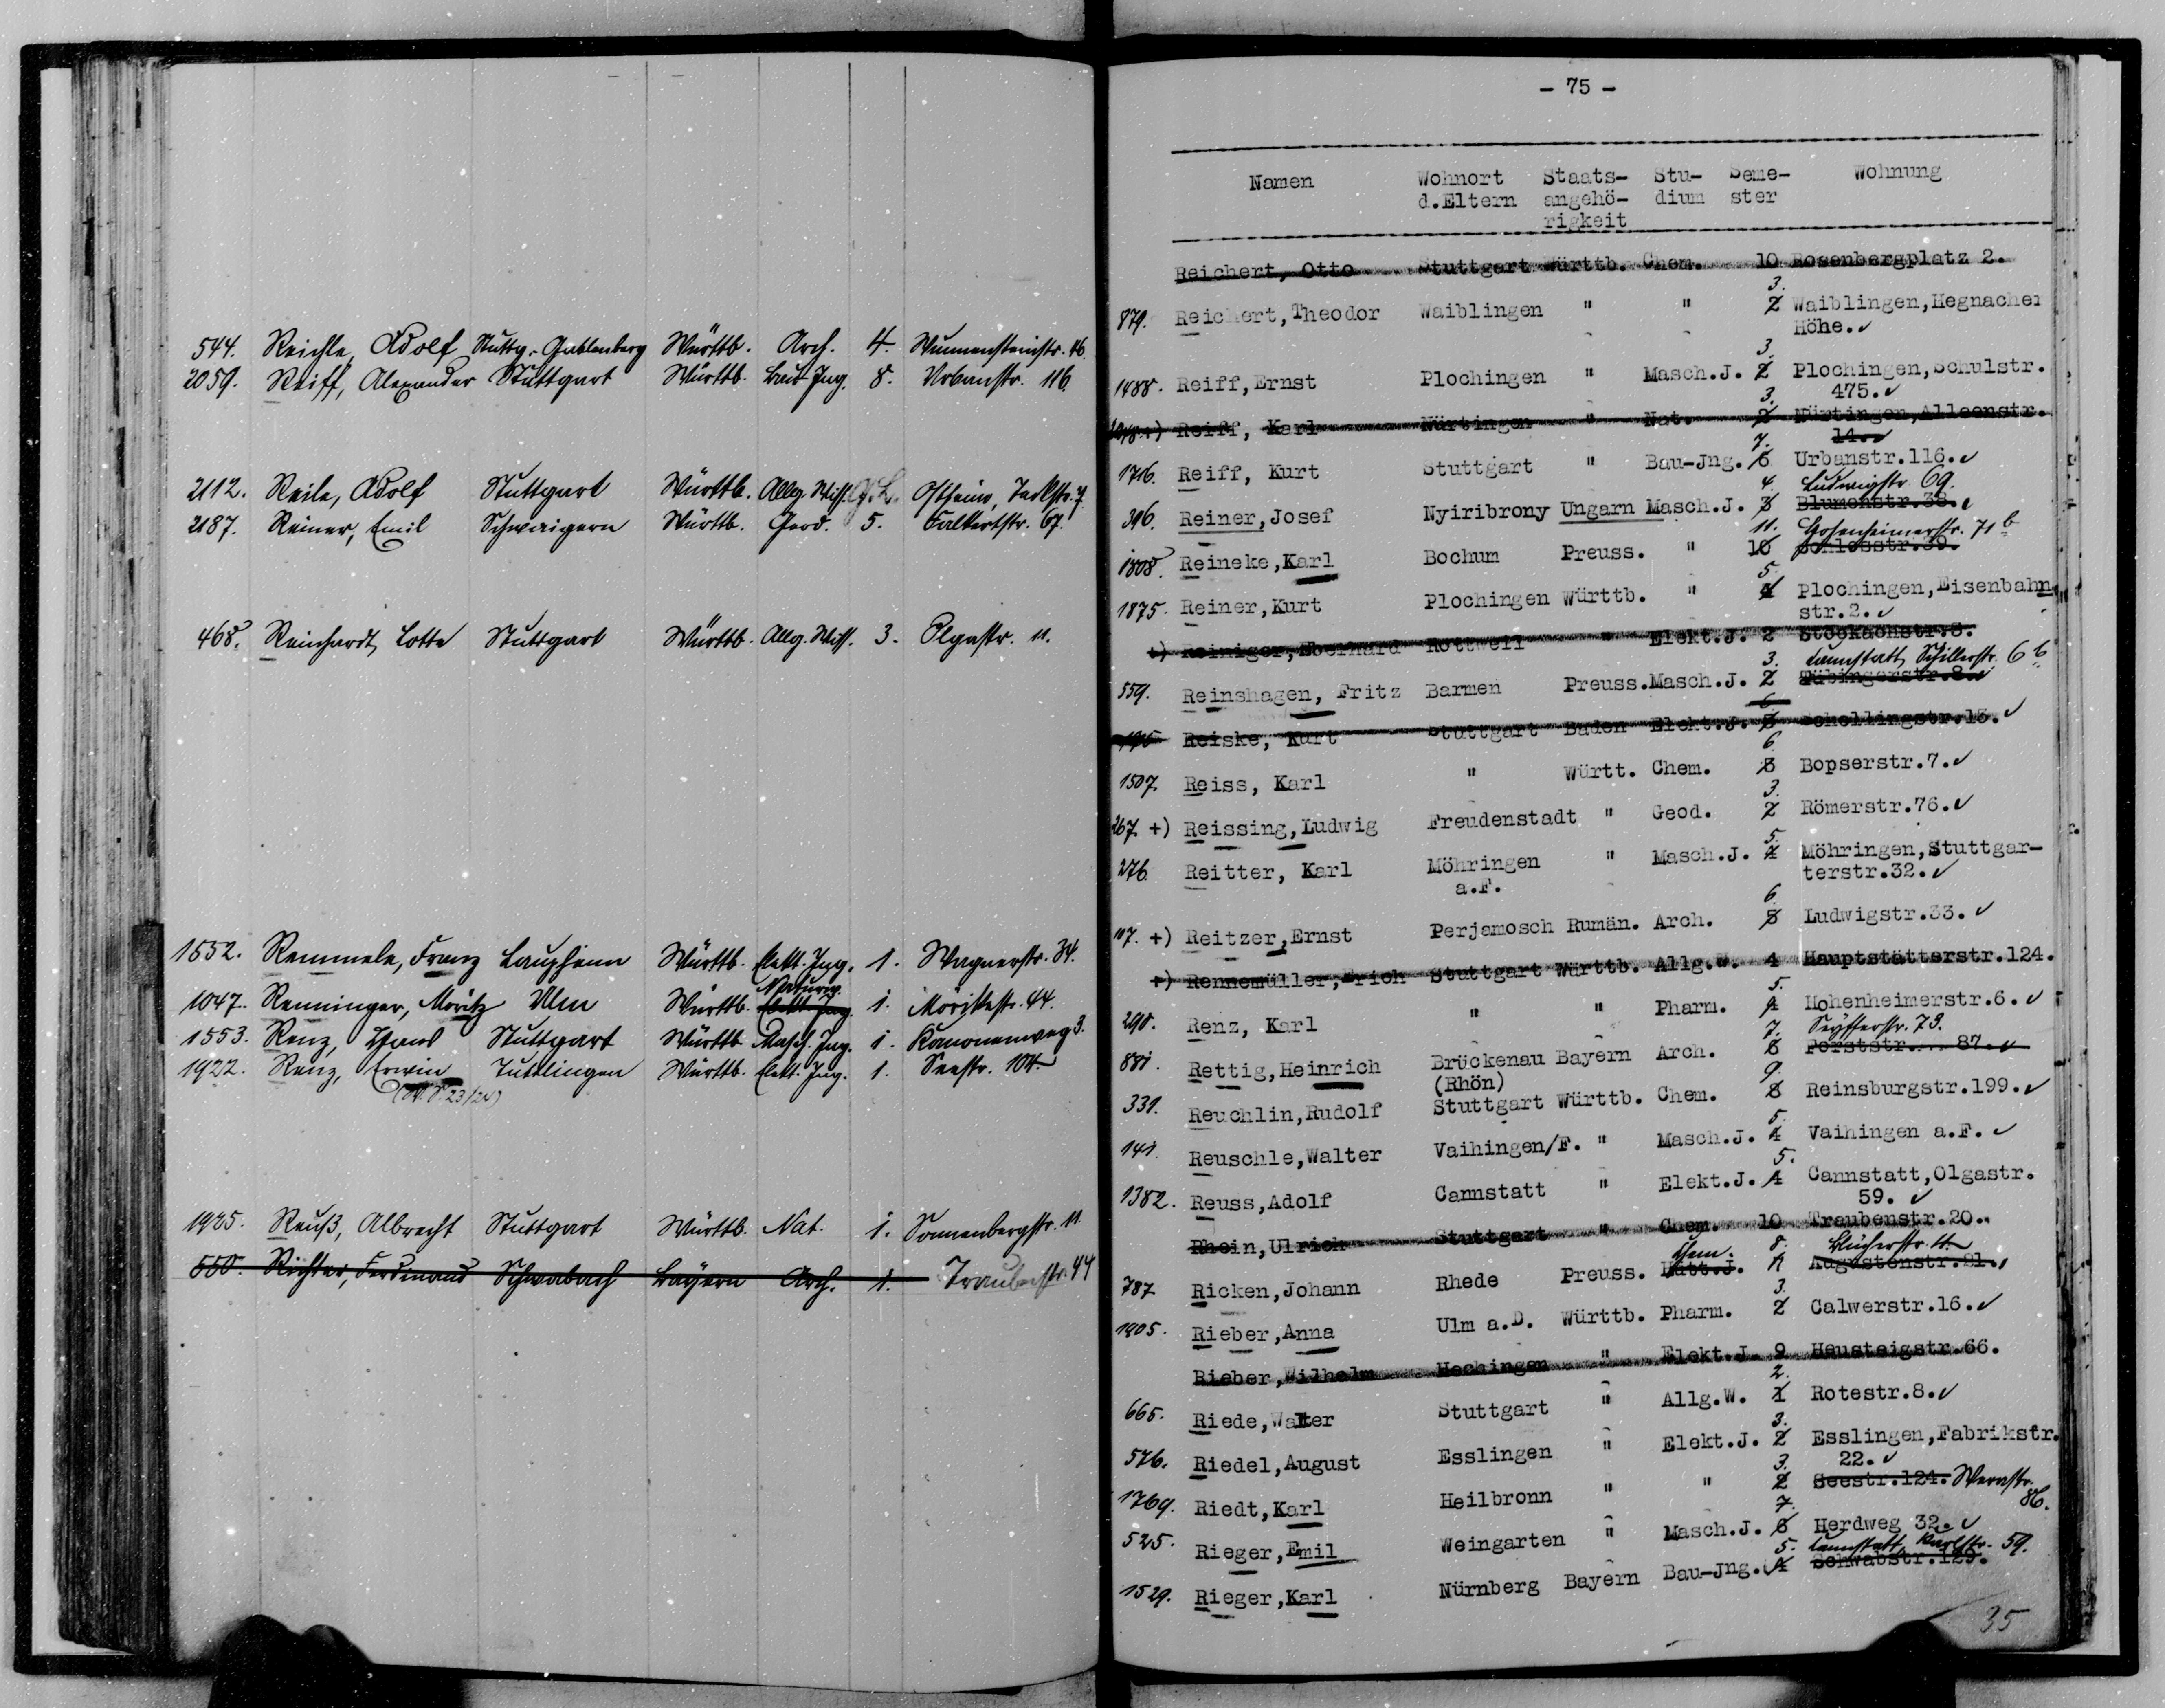 544. Reichle, Adolf Stuttg.-Gablenberg Württb. Arch. 4. Wunnensteinstr. 46.
2059. Reiff, Alexander Stuttgart Württb. Bau-Jng. 8. Urbanstr. 116
2112. Reile, Adolf Stuttgart Württb. Allg. Wiss. Ostheim, Teckstr. 7
2187. Reiner, Emil Schwaigern Württb. Geod. 5. Falkertstr. 67.
468. Reinhardt, Lotte Stuttgart Württb. Allg. Wiss. 3. Olgastr. 11.
1552. Remmele, Franz Laupheim Württb. Elekt. Jng. 1. Wagnerstr. 34.
Naturw.
1047. Renninger, Moritz Ulm Württb. Elekt. Jng. 1. Mörikestr. 44.
1553. Renz, Hans Stuttgart Württb. Masch. Jng. 1. Kanonenweg 3.
1922. Renz, Erwin Tuttlingen Württb. Elekt. Jng. 1. Seestr. 104
(W.S. 23/24)
1925. Reuß, Albrecht Stuttgart Württb. Nat. 1. Sonnenbergstr. 11
550. Richter, Ferdinand Schwabach Bayern Arch. 1. Traubenstr. 44
- 75 -
Namen Wohnort Staats- Stu- Seme- Wohnung
d.Eltern angehö- dium ster
rigkeit
Reichert, Otto Stuttgart Württb. Chem. 10 Rosenbergplatz 2.
3.
879. Reichert, Theodor Waiblingen " " 2 Waiblingen, Hegnacher
Höhe.
3.
1488. Reiff, Ernst Plochingen " Masch.J. 2 Plochingen, Schulstr.
475.
3.
+) Reiff, Karl Nürtingen " Nat. 2 Nürtingen, Alleenstr.
14.
7.
1716. Reiff, Kurt Stuttgart " Bau-Jng. 6 Urbanstr.116.
4. Ludwigstr. 69.
396. Reiner, Josef Nyiribrony Ungarn Masch.J. 3 Blumenstr.38.
11. Hohenheimerstr. 71 b
1808. Reineke, Karl Bochum Preuss. " 10 Schlossstr.39.
5.
1875. Reiner, Kurt Plochingen Württb. " 4 Plochingen, Eisenbahn
str.2.
+) Reiniger, Eberhard Rottweil " Elekt.J. 2 Stöckachstr.8.
3. Cannstatt, Schillerstr. 6 b
559. Reinshagen, Fritz Barmen Preuss. Masch.J. 2 Tübingerstr.8
6
Reiske, Kurt Stuttgart Baden Elekt.J. 5 Schellingstr.13.
6.
1507. Reiss, Karl " Württ. Chem. 5 Bopserstr.7.
3.
267. +) Reissing, Ludwig Freudenstadt " Geod. 2 Römerstr.76.
5.
276 Reitter, Karl Möhringen " Masch.J. 4 Möhringen, Stuttgar-
a.F. terstr.32.
6.
107. +) Reitzer, Ernst Perjamosch Rumän. Arch. 5 Ludwigstr.33.
+) Rennemüller, Erich Stuttgart Württb. Allg.W. 4 Hauptstätterstr.124.
5.
298. Renz, Karl " " Pharm. 4 Hohenheimerstr.6.
7. Seyfferstr. 73.
881. Rettig, Heinrich Brückenau Bayern Arch. 6 Forststr. 87.
(Rhön)
9.
331. Reuchlin, Rudolf Stuttgart Württb. Chem. 8 Reinsburgstr.199.
5.
141. Reuschle, Walter Vaihingen/F. " Masch.J. 4 Vaihingen a.F.
5.
1382. Reuss, Adolf Cannstatt " Elekt.J. 4 Cannstatt, Olgastr.
59.
Rhein, Ulrich Stuttgart " Chem. 10 Traubenstr.20.
Chem. 8.
787 Ricken, Johann Rhede Preuss. Hütt.J. Augustenstr.21.
3.
1905. Rieber, Anna Ulm a.D. Württb. Pharm. 2 Calwerstr.16.
Rieber, Wilhelm Hechingen " Elekt.J. 9 Heusteigstr.66.
2.
665. Riede, Walter Stuttgart " Allg.W. 1 Rotestr.8.
3.
576. Riedel, August Esslingen " Elekt.J. 2 Esslingen, Fabrikstr.
22.
3.
1769. Riedt, Karl Heilbronn " " 2 Seestr.124. Werastr.
86.
7.
525. Rieger, Emil Weingarten " Masch.J. 6 Herdweg 32.
5. Cannstatt, Karlstr. 59.
1529. Rieger, Karl Nürnberg Bayern Bau-Jng. 4 Schwabstr.125.
35